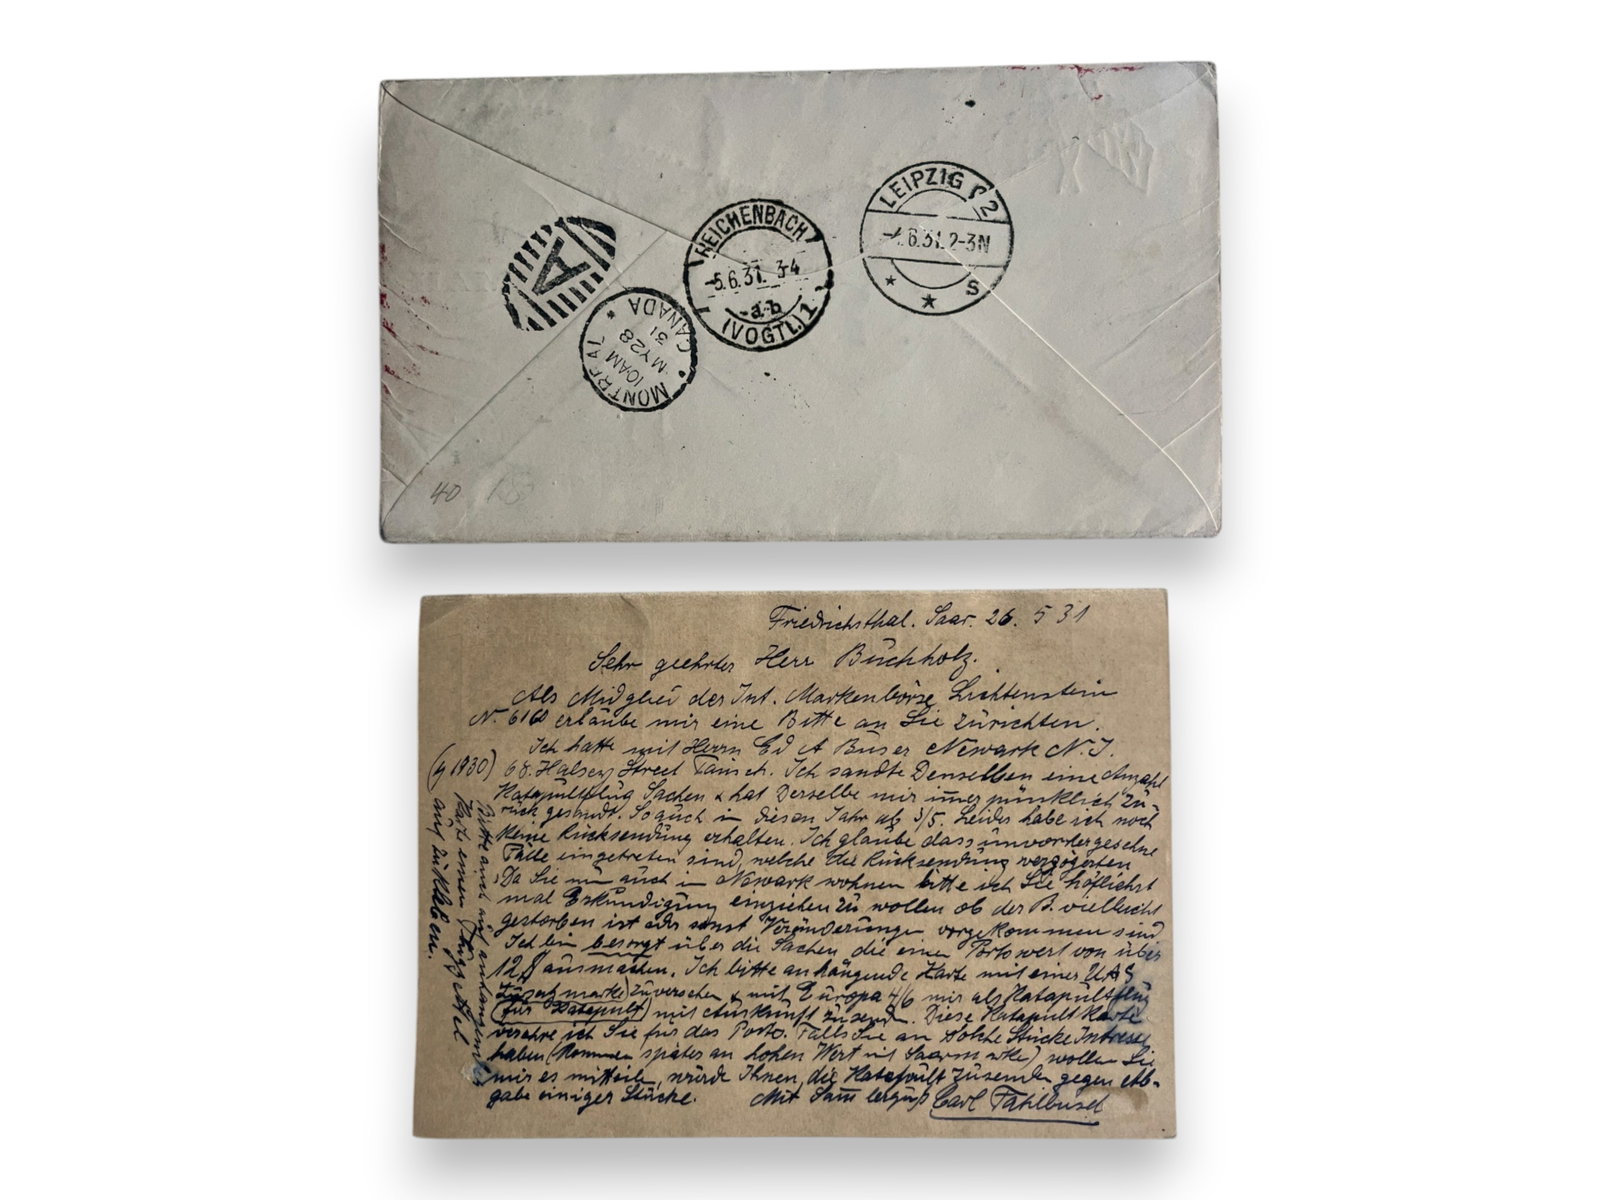 LEIPZIG C 2
6.31.2-3N
* * s
REICHENBACH
5.6.31. 3-4
a b
(VOGTL) 1
A
MONTREAL
10 AM
MY 28
31
CANADA
40
Friedrichsthal. Saar. 26. 5 31
Sehr geehrter Herr Buchholz.
Als Midglied der Int. Markenbörse Lichtenstein
N. 6160 erlaube mir eine Bitte an Sie zurichten.
Ich hatte mit Herrn Ed A Buser Newark N.J.
68. Halsey Street Tausch. Ich sandte Denselben eine Anzahl
Katapultflug Sachen & hat Derselbe mir imer pünklich zu-
rück gesandt. So auch in diesen Jahr ab 3/5. Leider habe ich noch
keine Rücksendung erhalten. Ich glaube dass unvorhergesehne
Fälle eingetreten sind, welche die Rücksendung verzögerten
Da Sie nun auch in Newark wohnen bitte ich Sie höflichst
mal Erkundigung einziehen zu wollen ob der B. vielleicht
gestorben ist oder sonst Veränderungen vorgekommen sind
Ich bin besorgt über die Sachen die einen Portowert von über
12 $ ausmachen. Ich bitte anhängende Karte mit einer U.A.S
Zusatzmarke) zuversehen & mit Europa 4/6 mir als Katapultflug
(für Katapult) mit Auskunft zusenden. Diese Katapult Karte
verehre ich Sie für das Porto. Falls Sie an solche Stücke Intresse
haben (Kommen später an hohen Wert mit Saarmarke) wollen Sie
mir es mitteilen, würde Ihnen, die Katapult zusenden gegen Ab-
gabe einiger Stücke. Mit Sammlergruß Carl Fahlbusch
(4 1930)
Bitte auch auf anhängender
Karte einen Flugzettel
aufzukleben.